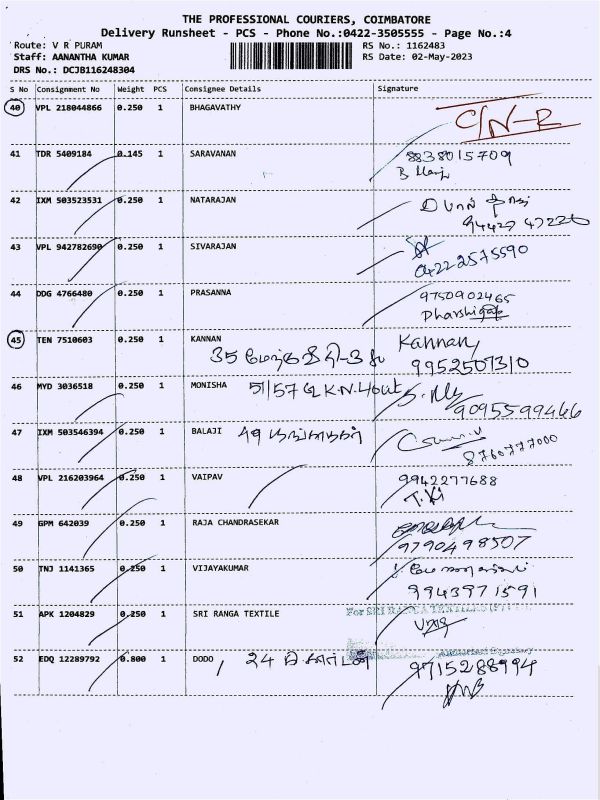 THE PROFESSIONAL COURIERS, COIMBATORE
Delivery Runsheet - PCS - Phone No.:0422-3505555 - Page No.:4
Route: V R PURAM
RS No.: 1162483
Staff: AANANTHA KUMAR
RS Date: 02-May-2023
DRS No.: DCJB116248304
S No Consignment No Weight PCS Consignee Details Signature
40 VPL 218044866 0.250 1 BHAGAVATHY C/N-R
41 TDR 5409184 0.145 1 SARAVANAN 8838015709
42 IXM 503523531 0.250 1 NATARAJAN
94427 47226
43 VPL 942782690 0.250 1 SIVARAJAN
0422-2575590
44 DDG 4766480 0.250 1 PRASANNA 9750902465
45 TEN 7510603 0.250 1 KANNAN Kannan
35 9952507310
46 MYD 3036518 0.250 1 MONISHA 51/57 K.N.
9095599466
47 IXM 503546394 0.250 1 BALAJI 49
8760777000
48 VPL 216203964 0.250 1 VAIPAV 9942277688
49 GPM 642039 0.250 1 RAJA CHANDRASEKAR
9790498507
50 TNJ 1141365 0.250 1 VIJAYAKUMAR
9943971591
51 APK 1204829 0.250 1 SRI RANGA TEXTILE For SRI RANGA TEXTILES
Authorised Signatory
52 EDQ 12289792 0.800 1 DODO, 24 9715288994